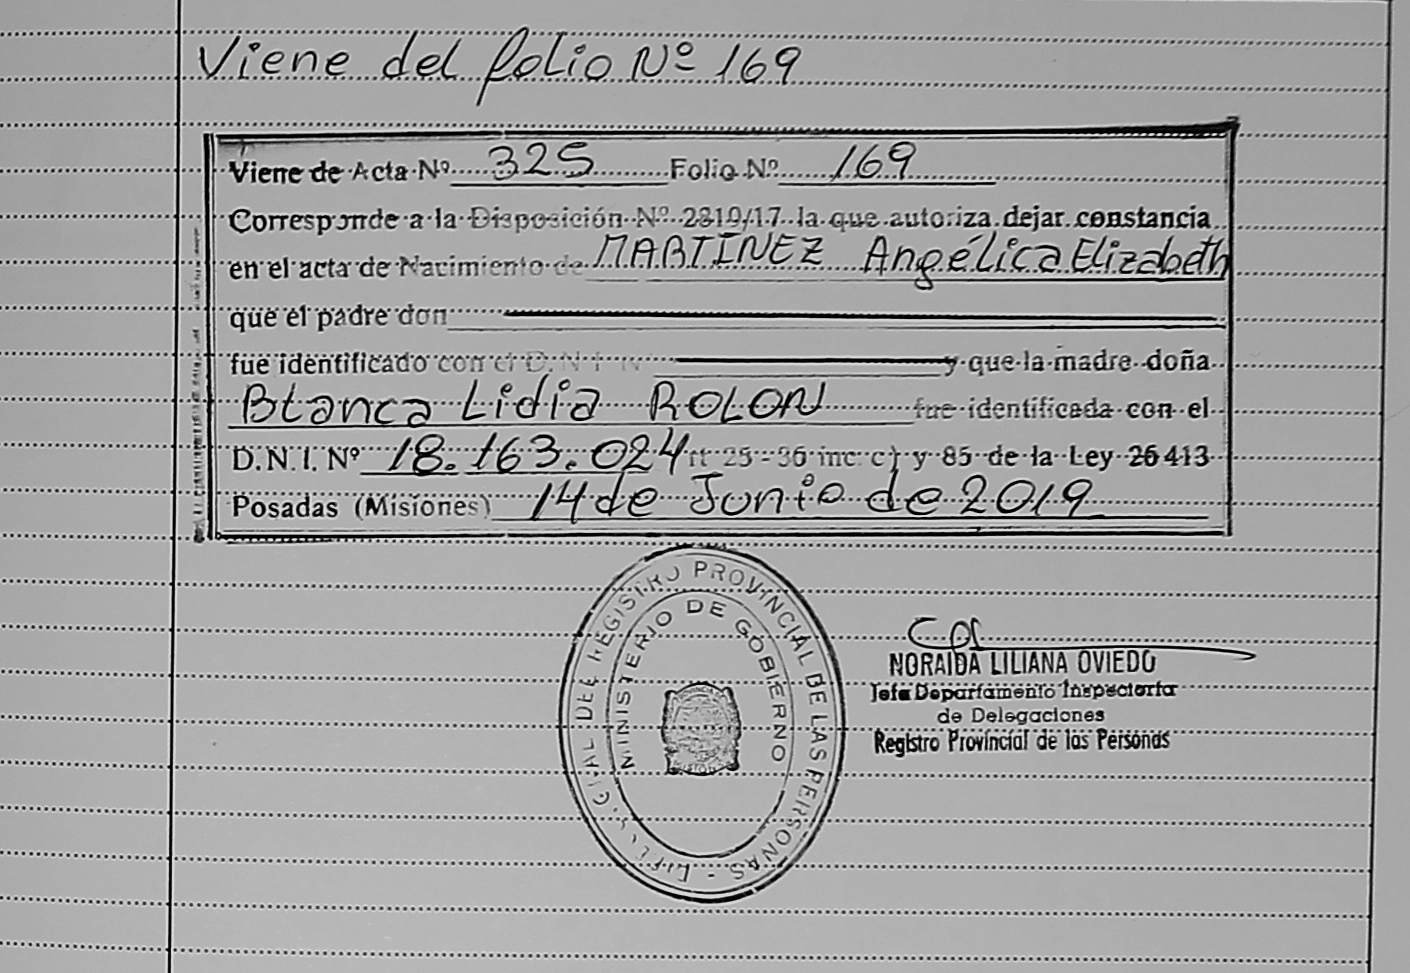 Viene del folio Nº 169
Viene de Acta Nº 325 Folio Nº 169
Corresponde a la Disposición Nº 2819/17 la que autoriza dejar constancia
en el acta de Nacimiento de MARTÍNEZ Angélica Elizabeth
que el padre don
fue identificado con el D.N.I Nº y que la madre doña
Blanca Lidia ROLON fue identificada con el
D.N.I. Nº 18.163.024 rt 25 - 36 inc c) y 85 de la Ley 26413
Posadas (Misiones) 14 de Junio de 2019
REGISTRO PROVINCIAL DE LAS PERSONAS
MINISTERIO DE GOBIERNO
NORAIDA LILIANA OVIEDO
Jefa Departamento Inspectoría
de Delegaciones
Registro Provincial de las Personas